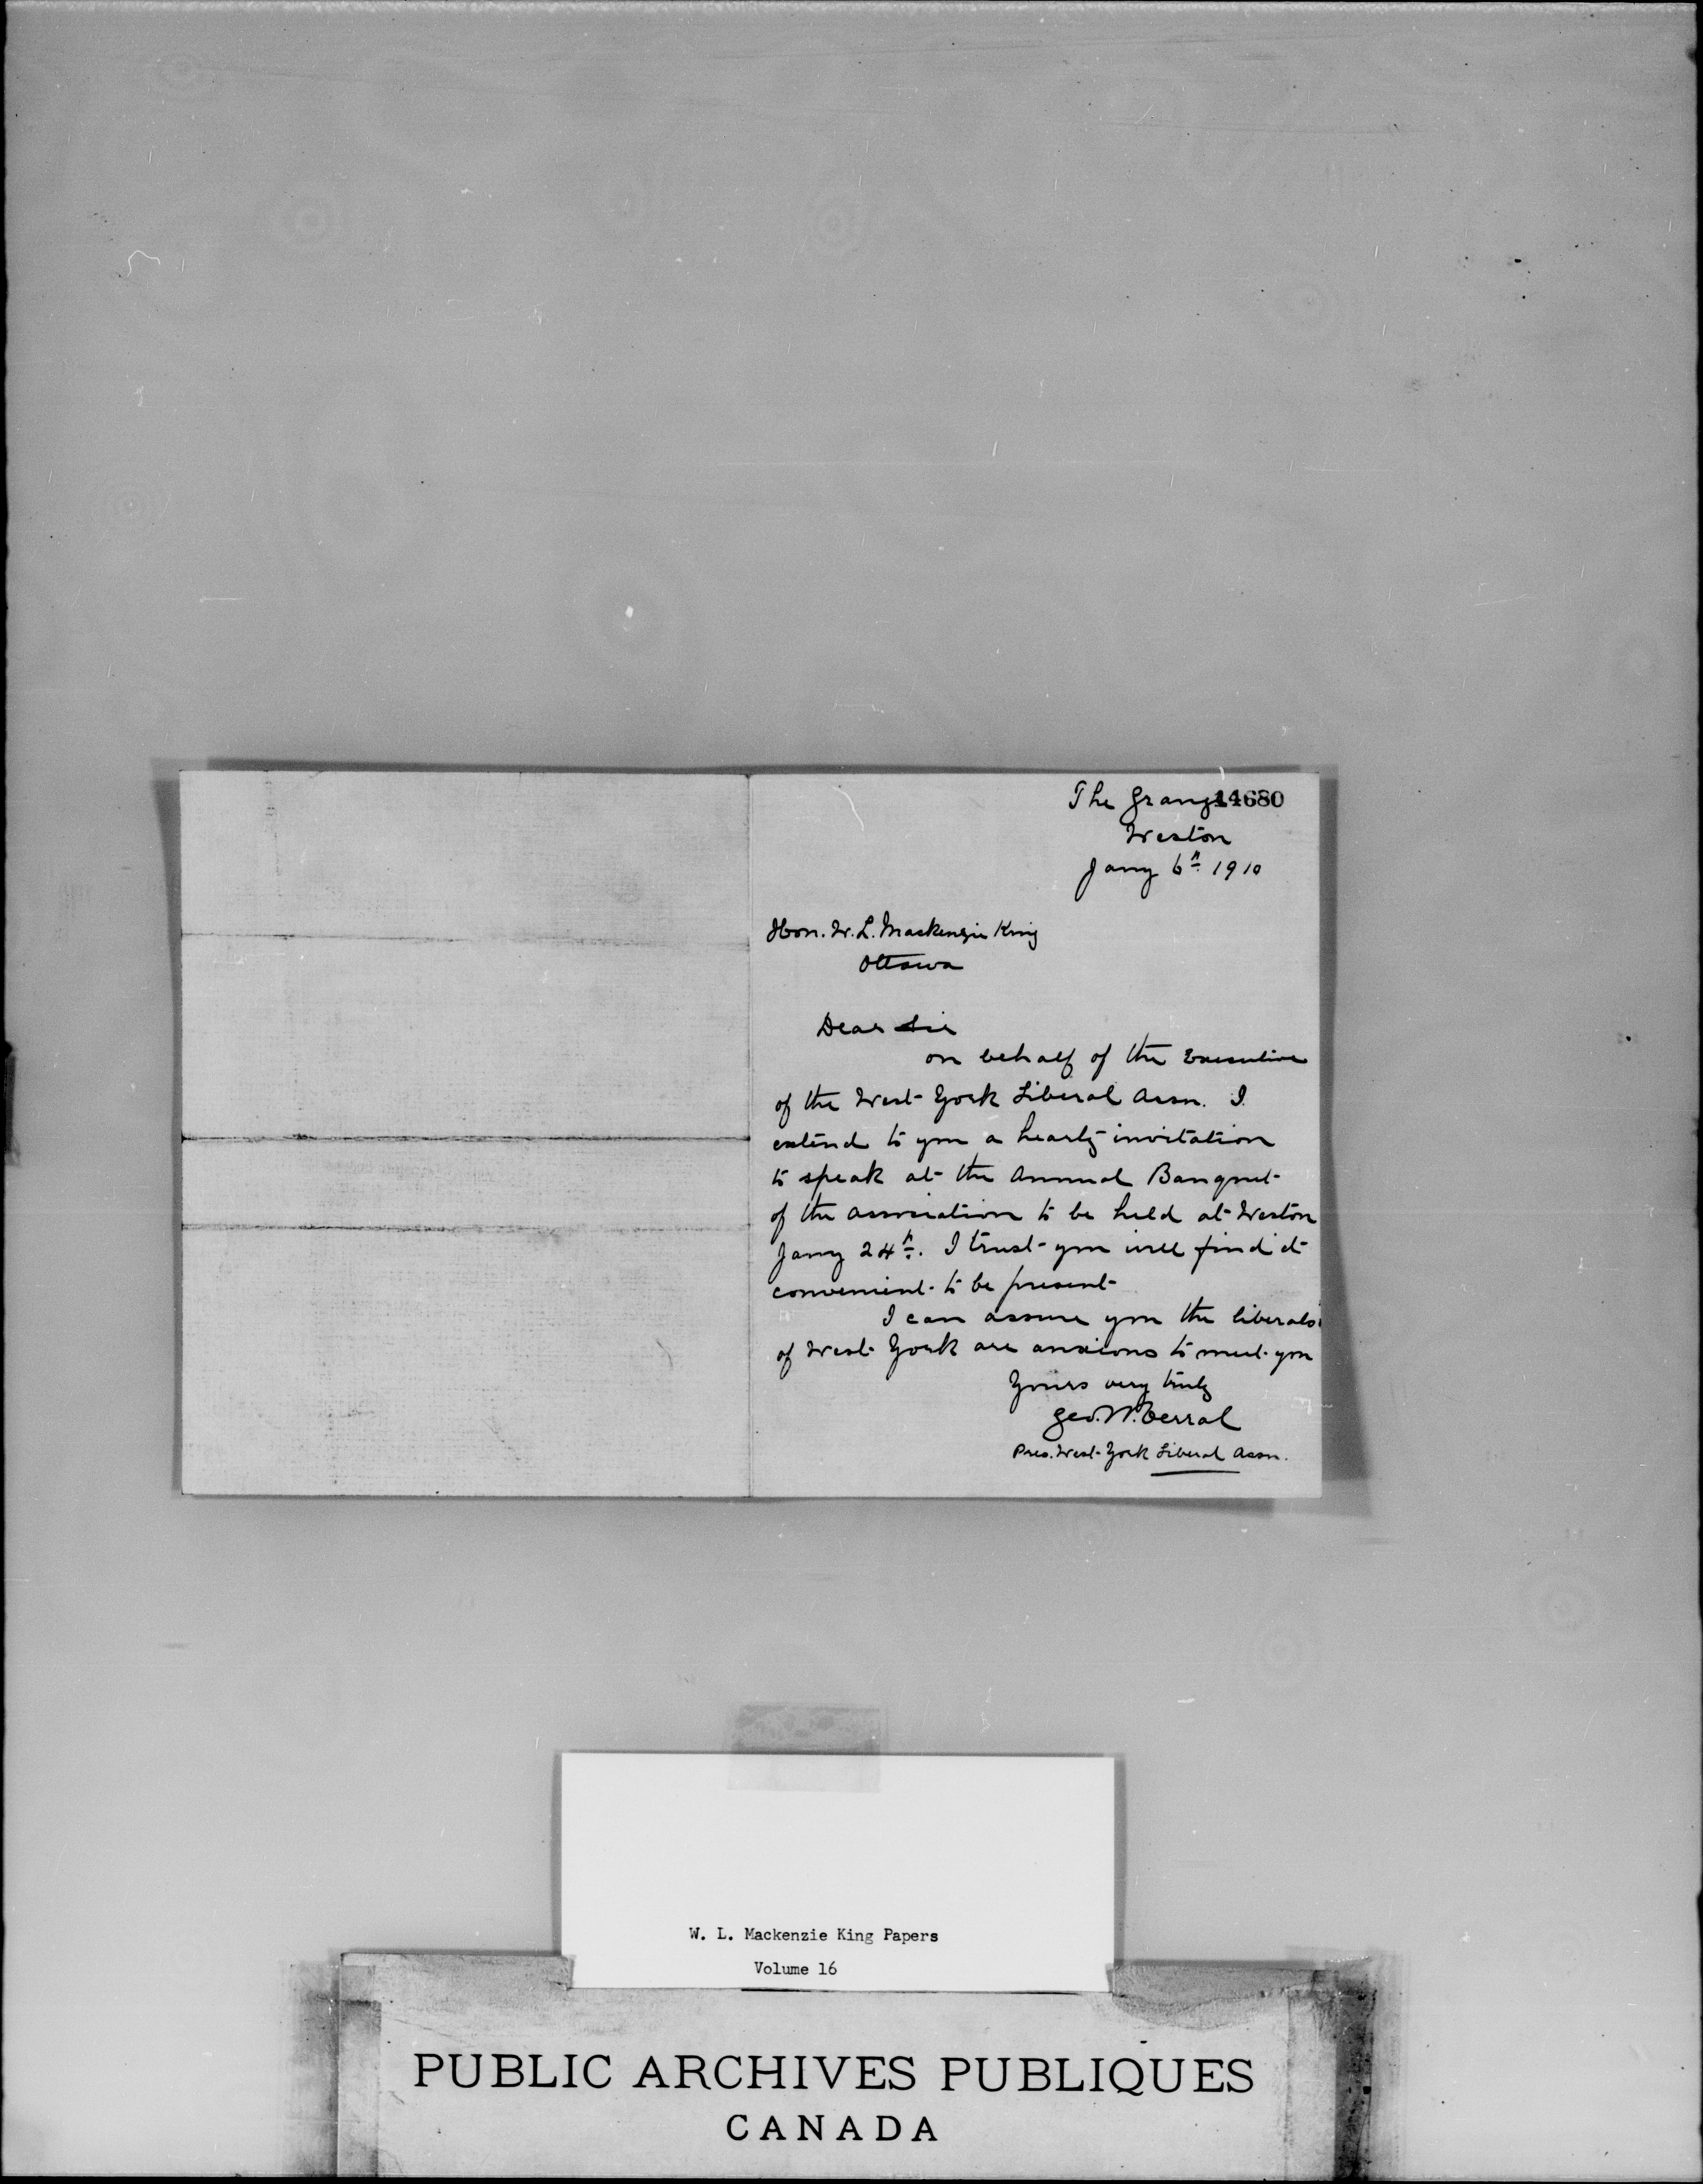 The Grange 14680
Weston
Jany 6th 1910
Hon. W. L. Mackenzie King
Ottawa
Dear Sir
on behalf of the Executive
of the West York Liberal Assn. I
extend to you a hearty invitation
to speak at the Annual Banquet
of the association to be held at Weston
Jany 24th. I trust you will find it
convenient to be present
I can assure you the liberals
of West York are anxious to meet you
Yours very truly
Geo. W. Verral
Pres. West York Liberal Assn.
W. L. Mackenzie King Papers
Volume 16
PUBLIC ARCHIVES PUBLIQUES
CANADA